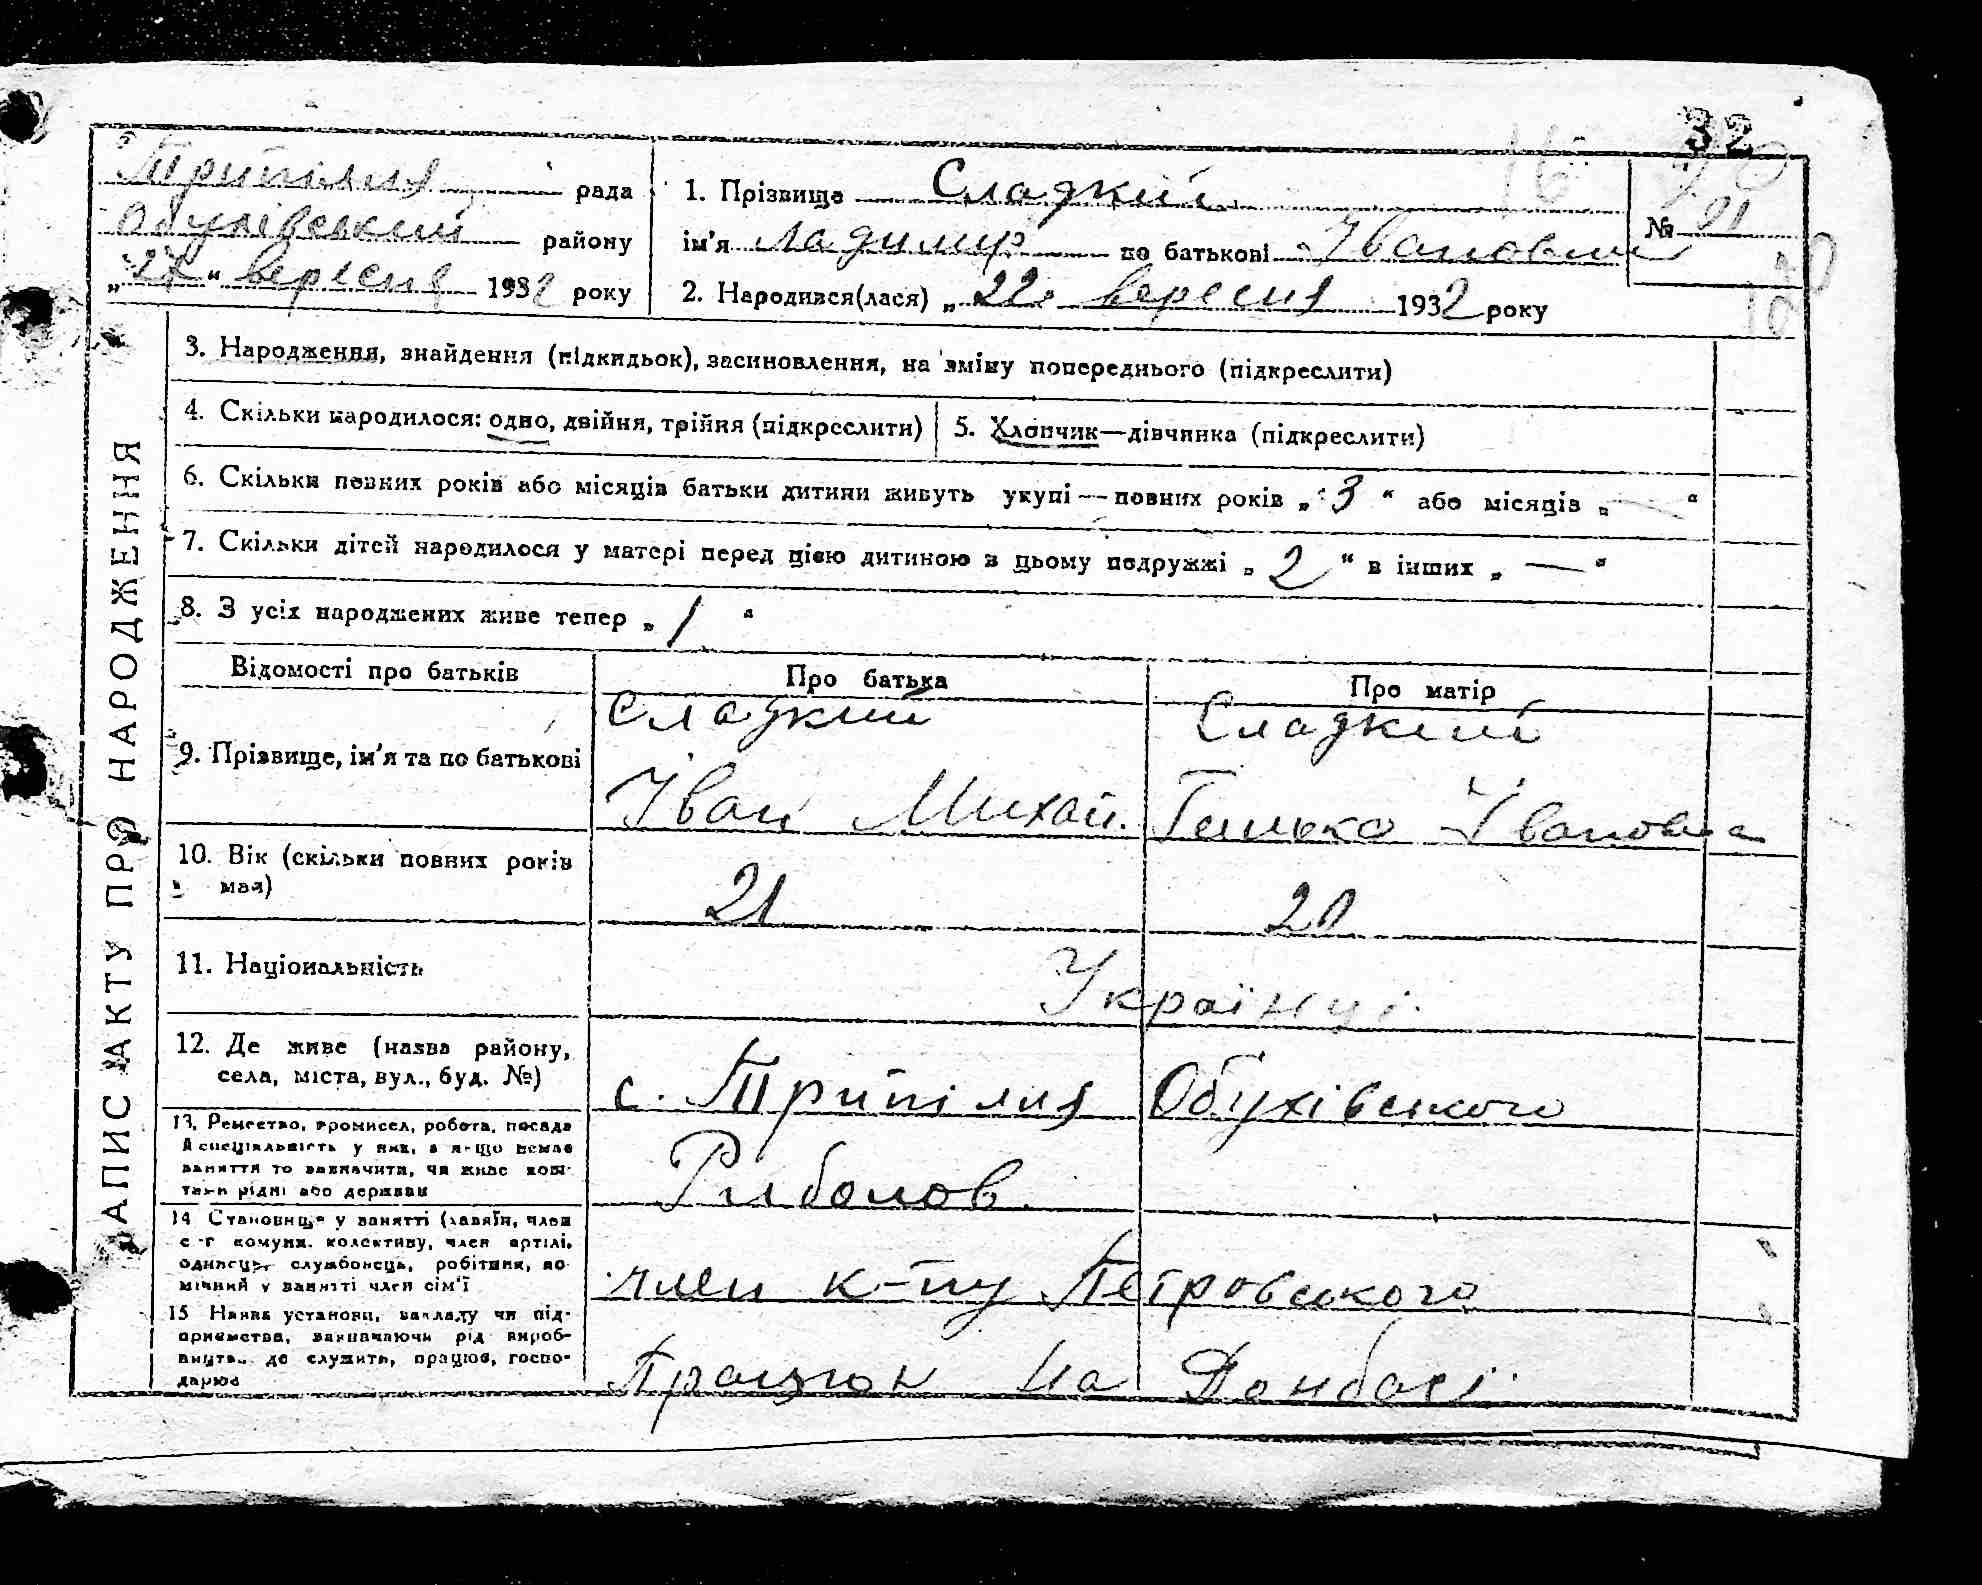 32
Трипілля рада
Обухівський району
„27“ вересня 1932 року
1. Прізвище Сладкий
ім’я Ладимир по батькові Івановыч
№ 91
2. Народився(лася) „22“ вересня 1932 року
ЗАПИС АКТУ ПРО НАРОДЖЕННЯ
3. Народження, знайдення (підкидьок), засиновлення, на зміну попереднього (підкреслити)
4. Скільки народилося: одно, двійня, трійня (підкреслити)
5. Хлопчик—дівчинка (підкреслити)
6. Скільки повних років або місяців батьки дитини живуть укупі — повних років „3“ або місяців „—“
7. Скільки дітей народилося у матері перед цією дитиною в цьому подружжі „2“ в інших „—“
8. З усіх народжених живе тепер „1“
Відомості про батьків Про батька Про матір
9. Прізвище, ім’я та по батькові
Сладкий Сладкий
Іван Михай. Івановна
10. Вік (скільки повних років
має)
21 20
11. Національність
Українці.
12. Де живе (назва району,
села, міста, вул., буд. №)
с. Трипілля Обухівського
13. Ремество, промисел, робота, посада
й спеціяльність у них, а якщо немає
заняття то зазначити, чи живе кош-
Риболов.
14 Становище у занятті (хазяїн, член
с-г комуни, колективу, член артілі,
одинець, службовець, робітник, по-
мічний у занятті член сім’ї
член к-пу Петровського
15 Назва установи, закладу чи під-
приємства, зазначаючи рід вироб-
ництва, де служить, працює, госпо-
дарює
Працюн на Донбасі.